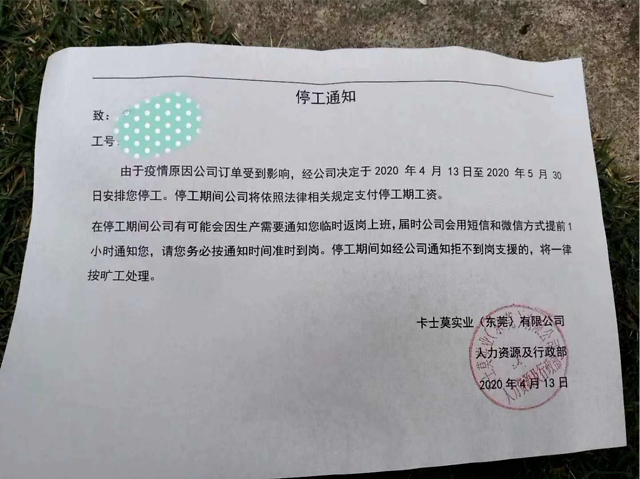 停工通知
致：
工号
由于疫情原因公司订单受到影响，经公司决定于 2020 年 4 月 13 日至 2020 年 5 月 30
日安排您停工。停工期间公司将依照法律相关规定支付停工期工资。
在停工期间公司有可能会因生产需要通知您临时返岗上班，届时公司会用短信和微信方式提前 1
小时通知您，请您务必按通知时间准时到岗。停工期间如经公司通知拒不到岗支援的，将一律
按旷工处理。
卡士莫实业（东莞）有限公司
人力资源及行政部
2020 年 4 月 13 日
人力资源及行政部